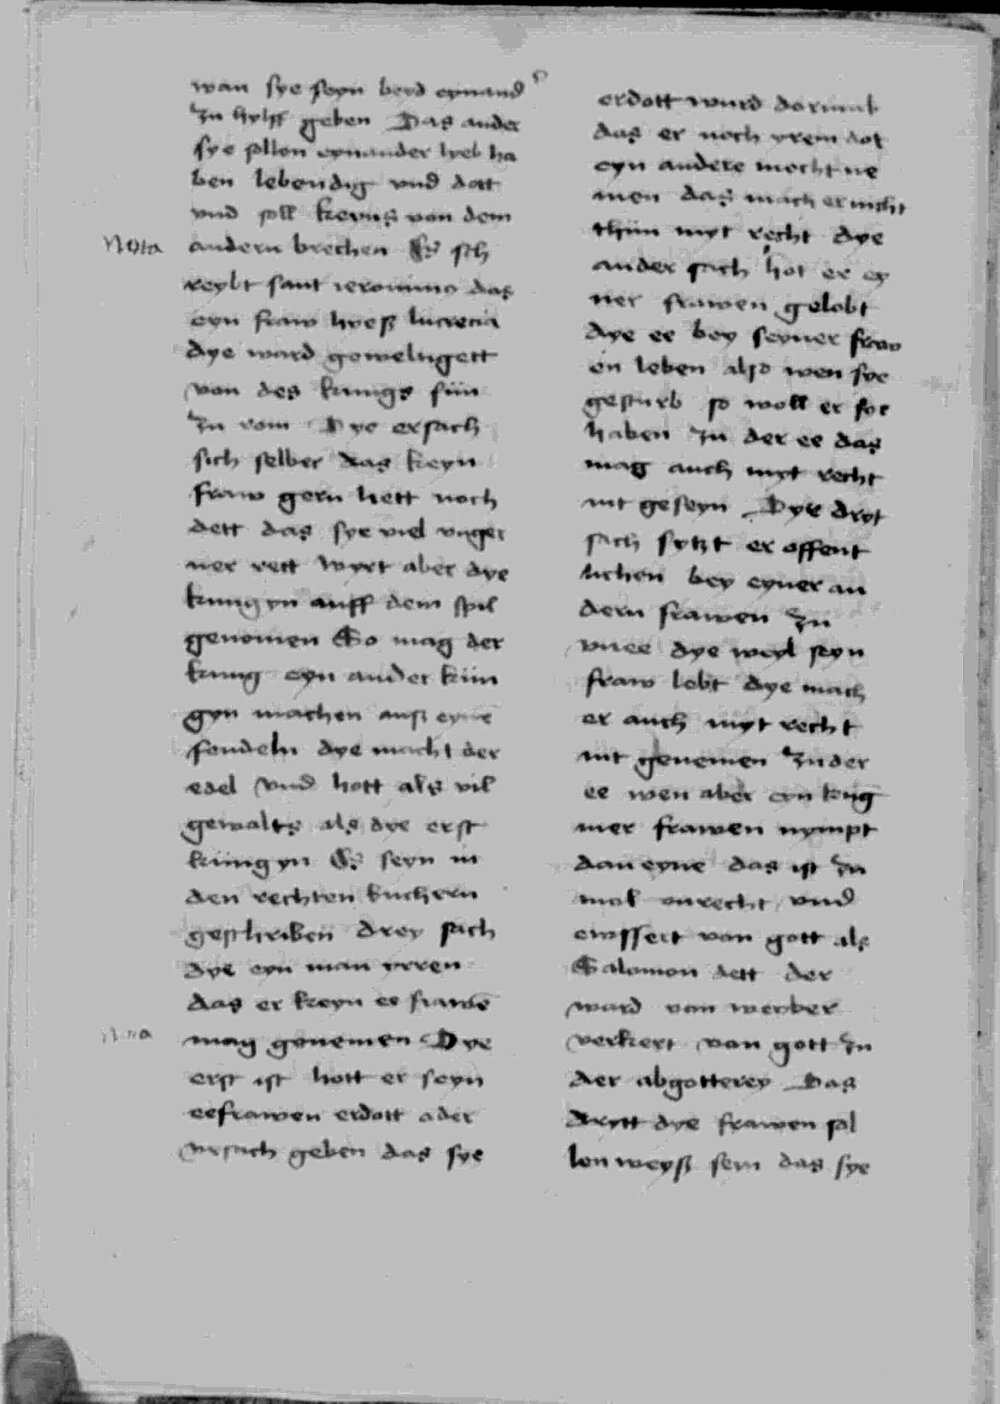 wan sye seyn beyd eynand
zu hylff geben Das ander
sye sollen eynander lyeb ha
ben lebendig vnd dott
vnd soll keyns van dem
Nota
andern brechen Es sch
reybt sant ieronimus das
eyn fraw hyeß lucrecia
dye ward gewelngett
van des kunigs sün
zu rom Dye ersach
sich selber das keyn
fraw gern hett noch
dett das sye viel vnger
ner rett Wyrt aber dye
kungyn auff dem spil
genomen So mag der
kunig eyn ander kün
gyn machen auß eyne
fendeln dye macht der
edel vnd hott als vil
gewalts als dye erst
küngyn Es seyn in
den rechten buchern
geschriben drey sach
dye eyn man yrren
das er keyn ee frawē
Nota
mag genemen Dye
erst ist hott er seyn
eefrawen erdott ader
vrsach geben das sye
erdott wurd darmab
das er noch yrem dot
eyn andere mocht ne
men das mach er nicht
thun myt recht dye
ander sach hot er ey
ner frawen gelobt
dye ee bey seyner fraw
en leben also wen sye
gesturb so woll er sye
haben zu der ee das
mag auch myt recht
nit geseyn Dye dryt
sach sytzt er offent
lichen bey eyner an
dern frawen zu
vnee dye weyl seyn
fraw lebt dye mach
er auch myt recht
nit genemen zu der
ee wen aber eyn kung
mer frawen nympt
dan eyne das ist zu
mol vnrecht vnd
ewssert van gott als
Salomon dett der
ward van weyber
verkert van gott zu
der abgotterey Das
drytt dye frawen sol
len weyß sein das sye